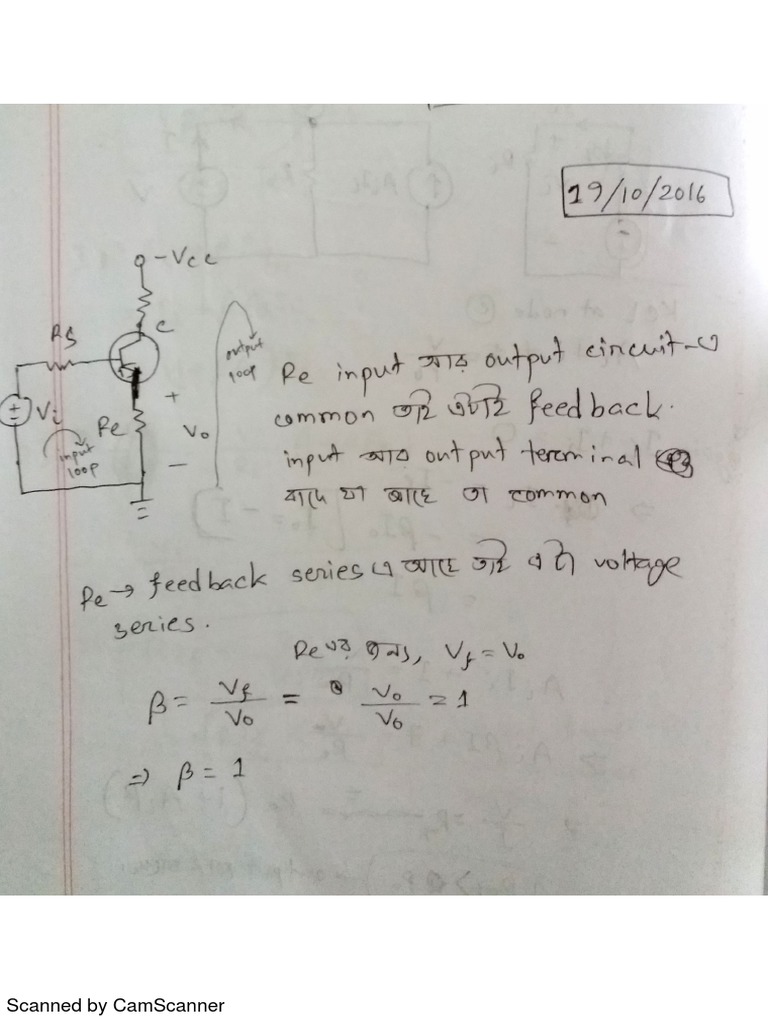 19/10/2016
-Vcc
c
Rs
output
loop
Vi
+
Re
Vo
-
input
loop
Re input আর output circuit-এ
common তাই এটাই feedback.
input আর output terminal
বাদে যা আছে তা common
Re → feedback series এ আছে তাই এটা voltage
series.
Re এর জন্য, Vf = Vo
β = Vf/Vo = Vo/Vo = 1
⇒ β = 1
Scanned by CamScanner